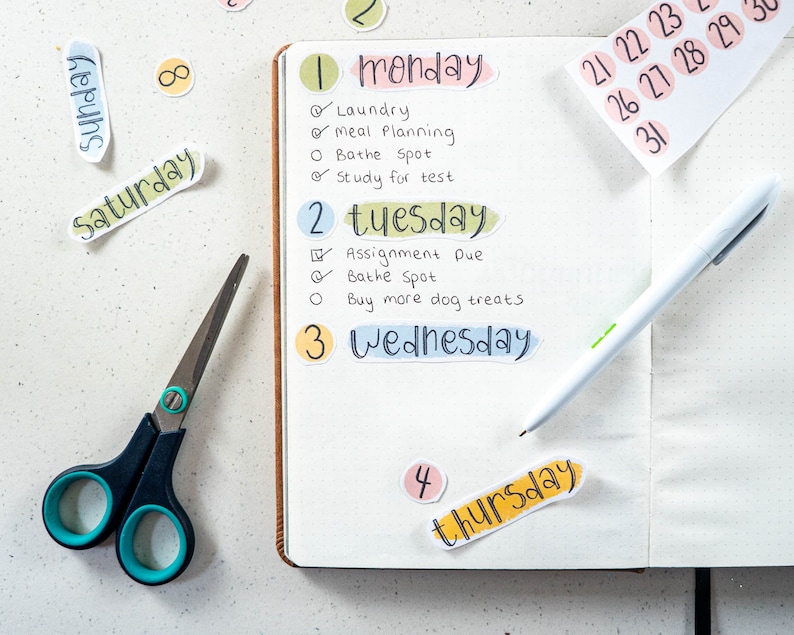 2
8
sunday
saturday
1 monday
Laundry
Meal Planning
Bathe Spot
Study for test
2 tuesday
Assignment Due
Bathe Spot
Buy more dog treats
3 wednesday
4 thursday
21 22 23
26 27 28 29 30
31